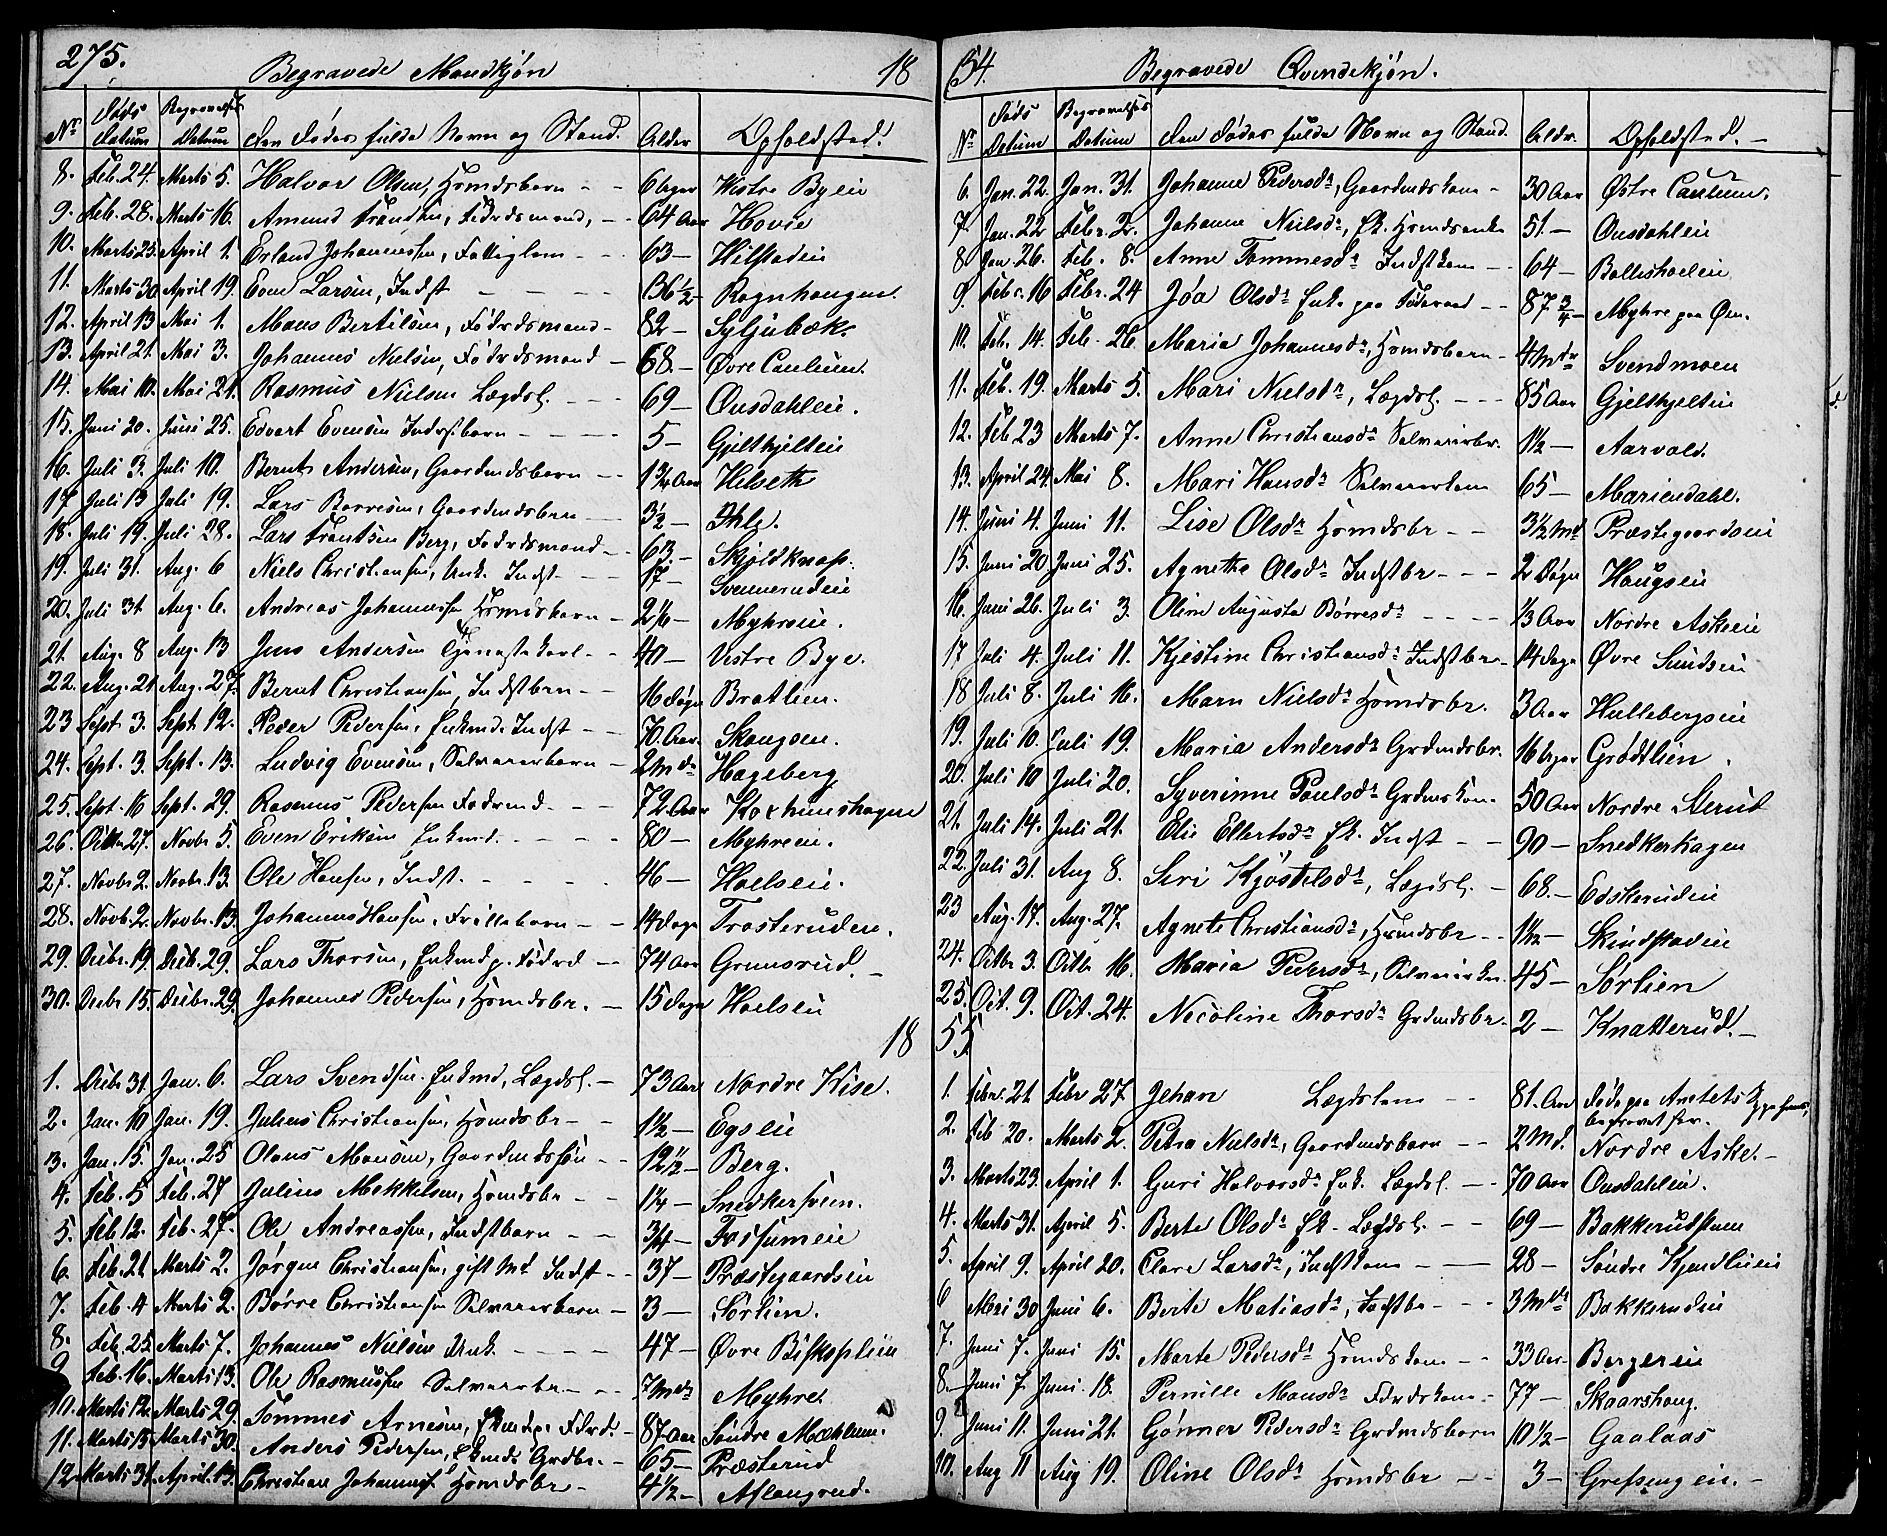 275.
Begravede Mandkjøn 18
Nr. Døds Datum Begravelses Datum Den Dødes fulde Navn og Stand. Alder Opholdsted.
8. Feb. 24. Marts 5. Halvor Olsen, Hsmdsbarn - - 6 Uger Vestre Byeie
9. Feb. 28. Marts 16. Amund - 64 Aar Hovie
10. Marts 25. April 1. Erland Johannessen, Fattiglem - - 63 - Hilstadeie
11. Marts 30 April 19. Even Larsen, Indst - - - 36 1/2 - Rognhaugen.
12. April 13 Mai 1. Maus Bertilsen, Fødrdsmand - 82 - Syljubæk.
13. April 21. Mai 3. Johannes Nielsen, Fødrdsmand - 68. - Øvre Caulum.
14. Mai 10. Mai 21. Rasmus Nielsen Lægdsl. - - - 69 - Ousdahleie.
15. Juni 20. Juni 25. Edvart Evensen Indstbarn - - - 5 - Gjeltkjeltie
16. Juli 3. Juli 10. Bernt Andersen, Gaardmdsbarn - - 1 3/4 Aar Helseth
17 Juli 13 Juli 19. Lars Børresen, Gaardmdsbrn - 3 1/2 - Ihle.
18. Juli 19. Juli 28. Lars Frantsen Berg, Fødrdsmand - 63 - Skjoldknap.
19. Juli 31. Aug. 6 Niels Christiansen, Unk. Indst - - - 17 - Svenerudeie
20. Juli 31 Aug. 6. Andreas Johannessen Hsmdsbarn - 2 1/6 - Myhreie.
21. Aug. 8 Aug. 13 Jens Andersen Tjenestekarl - - 40 - Vestre Bye.
22. Aug. 21 Aug. 27. Bernt Christiansen, Indstbrn - - 16 Døgn Bratlien.
23 Sept. 3. Sept. 12. Peder Pedersen, Enkmd. Indst - - 70. Aar. Skougen.
24. Sept. 3. Sept. 13. Ludvig Evensen, Selveierbarn - 2 Mdr Hageberg
25. Sept. 16 Sept. 29. Rasmus Pedersen Fødrmd. - - 72 Aar Kochunshagen
26. Octbr 27. Novbr 5. Even Eriksen Enkmd. - - - 80 - Myhreie.
27. Novbr 2. Novbr. 13. Ole Hansen, Indst. - - - - 46 - Hoelseie.
28. Novb. 2. Novbr. 13. Johannes Hansen, Frillebarn - - 14 Dage Trosteruden.
29. Decbr. 19. Decb. 29. Lars Thorsen, Enkmd p. Fødrd - - 74 Aar Grunsrud. -
30. Decbr 15. Decbr. 29. Johannes Pedersen, Hsmdsbr. - 15 Dage Hoelseie
18
1. Decbr 31. Jan. 6. Lars Svendsen. Enkmd, Lægdsl. - 73 Aar Nordre Kise.
2. Jan. 10 Jan. 19. Julius Christiansen, Hsmdsbr - - 1 1/2 - Egseie
3. Jan. 15. Jan. 25 Olaus Monsen, Gaardmdssøn - - 12 1/2 - Berg.
4. Feb. 5 Feb. 27 Julius Mekkelsen, Hsmdsbr - - 1 1/4 - Snedkersveen.
5. Feb 12. Feb. 27. Ole Andreassen, Indstbarn - - 3/4 - Fossumeie
6. Feb. 21 Marts 2. Jørgen Christiansen, gift Md Indst - - 37 - Præstegaardseie
7. Feb. 4 Marts 2. Børre Christiansen Selveierbarn - 3 - Sørlien.
8. Feb. 25 Marts 7. Johannes Nielsen Unk. - - - 47 - Øvre Biskoplien
9 Feb. 16. Marts 13. Ole Rasmussen Selveierbr - - - 7 Mdr Myhre.
10. Marts 12. Marts 29. Tommes Arnesen, Enkmd p. Fdrd. - 87 Aar Søndre Mæhlum.
11. Marts 13. Marts 30. Anders Pedersen, Ekmd. Grdbr. - - 65 - Præsterud
12 Marts 31. April. 13. Christian Johannesen Hsmdsbr - 4 1/2 - Aslougrud.
54.
Begravede Qvindekjøn.
Nr. Døds Datum Begravelses Datum Den Dødes fulde Navn og Stand. Aldr. Opholdsted. -
6. Jan. 22. Jan. 31. Johanne Pedersdr, Gaardmdskone - 30 Aar Østre Caulum.
7 Jan. 22 Febr. 2. Johanne Nielsdr, Ek. Hsmdsenke 51. - Ousdahleie
8 Jan 26. Feb. 8. Anne Tommesdr Indstkone - - 64 - Bolleshoeleie
9. Febr. 16 Febr. 24 Jøa Olsdr Enke paa Føderaad - - 87 3/4 - Myhre paa Øen.
10. Feb. 14. Feb. 26. Maria Johannesdr, Hsmdsbarn - 4 Mdr Svendmoen
11. Feb. 19. Marts 5. Mari Nielsdr, Lægdsl. - - - 85 Aar Gjeltkjeltie
12. Feb 23 Marts 7. Anne Christiansdr Selveierbr. 1 1/2 - Aarvold.
13. April 24. Mai 8. Mari Hansdr Selveierkone 65 - Mariendahl.
14. Juni 4. Juni 11. Lise Olsdr Hsmdsbr - - 3 1/2 Md Præstegaardseie
15. Juni 20. Juni 25. Agnethe Olsdr Indstbr - - - 2 Døgn Haugseie
16. Juni 26. Juli 3. Oline Augusta Børresdr - - - - 1/3 Aar Nordre Askeie
17 Juli 4. Juli 11. Kjestine Christiansdr Indstbr - 14 Dage Øvre Sundseie
18 Juli 8. Juli 16. Marn Nielsdr Hsmdsbr. 3 Aar Hullebergseie
19. Juli 10. Juli 19. Maria Andersdr Grdmdsbr. 16 Uger Grødtlien.
20. Juli 10 Juli 20. Syverinne Poulsdr Grdmdskon. 50 Aar Nordre Sterud
21. Juli 14. Juli 21. Elie Ellertsdr Ek. Indst - - 90 - Snedkerhagen
22. Juli 31. Aug 8. Siri Kjøstelsdr, Lægdsl. - 68. - Edskerudeie
23 Aug. 17. Aug. 27. Agnete Christiansdr, Hsmdsbr - - 1 1/2 - Skindstadeie
24. Octbr 3. Octbr 16. Maria Pedersdr, Selveierkn. 45 - Sørlien
25. Oct. 9. Oct. 24. Nicoline Thorsdr Grdmdsbr - 2 - Knatterud. -
55
1. Febr. 21. Febr 27 Jehan Lægdslem - - 81. Aar Døde paa Amtets Sygehuus, begravet her.
2. Feb 20. Marts 2. Petra Nielsdr, Gaardmdsbarn - - 2 Md. Nordre Aske. -
3. Marts 23. April 1. Guri Halvorsdr Enk. Lægdsl. - - 70 Aar Ousdahleie.
4. Marts 31. April 5. Berte Olsdr Ek. Lægdsl. - - 69 - Bakkerudstuen
5. April 9. April 20. Clare Larsdr, Indstkone - - 28 - Søndre Kjendlieie
6 Mai 30 Juni 6. Berte Matiasdr, Indstbr - - - 3 Mdr Bakkerudeie
7. Juni 7. Juni 15. Marte Pedersdr Hsmdskone - - 33 Aar - Bergereie
8. Juni 7. Juni. 18. Pernille Monsdr Fdrdskone - 77 - Skaarshoug.
9. Juni 11. Juni 21. Gønner Pedersdr Grdmdsbarn 10 1/2 - Gaalaas
10. Aug 11 Aug 19. Oline Olsdr Hsmdsbr - - 3 - Grefsengeie. -